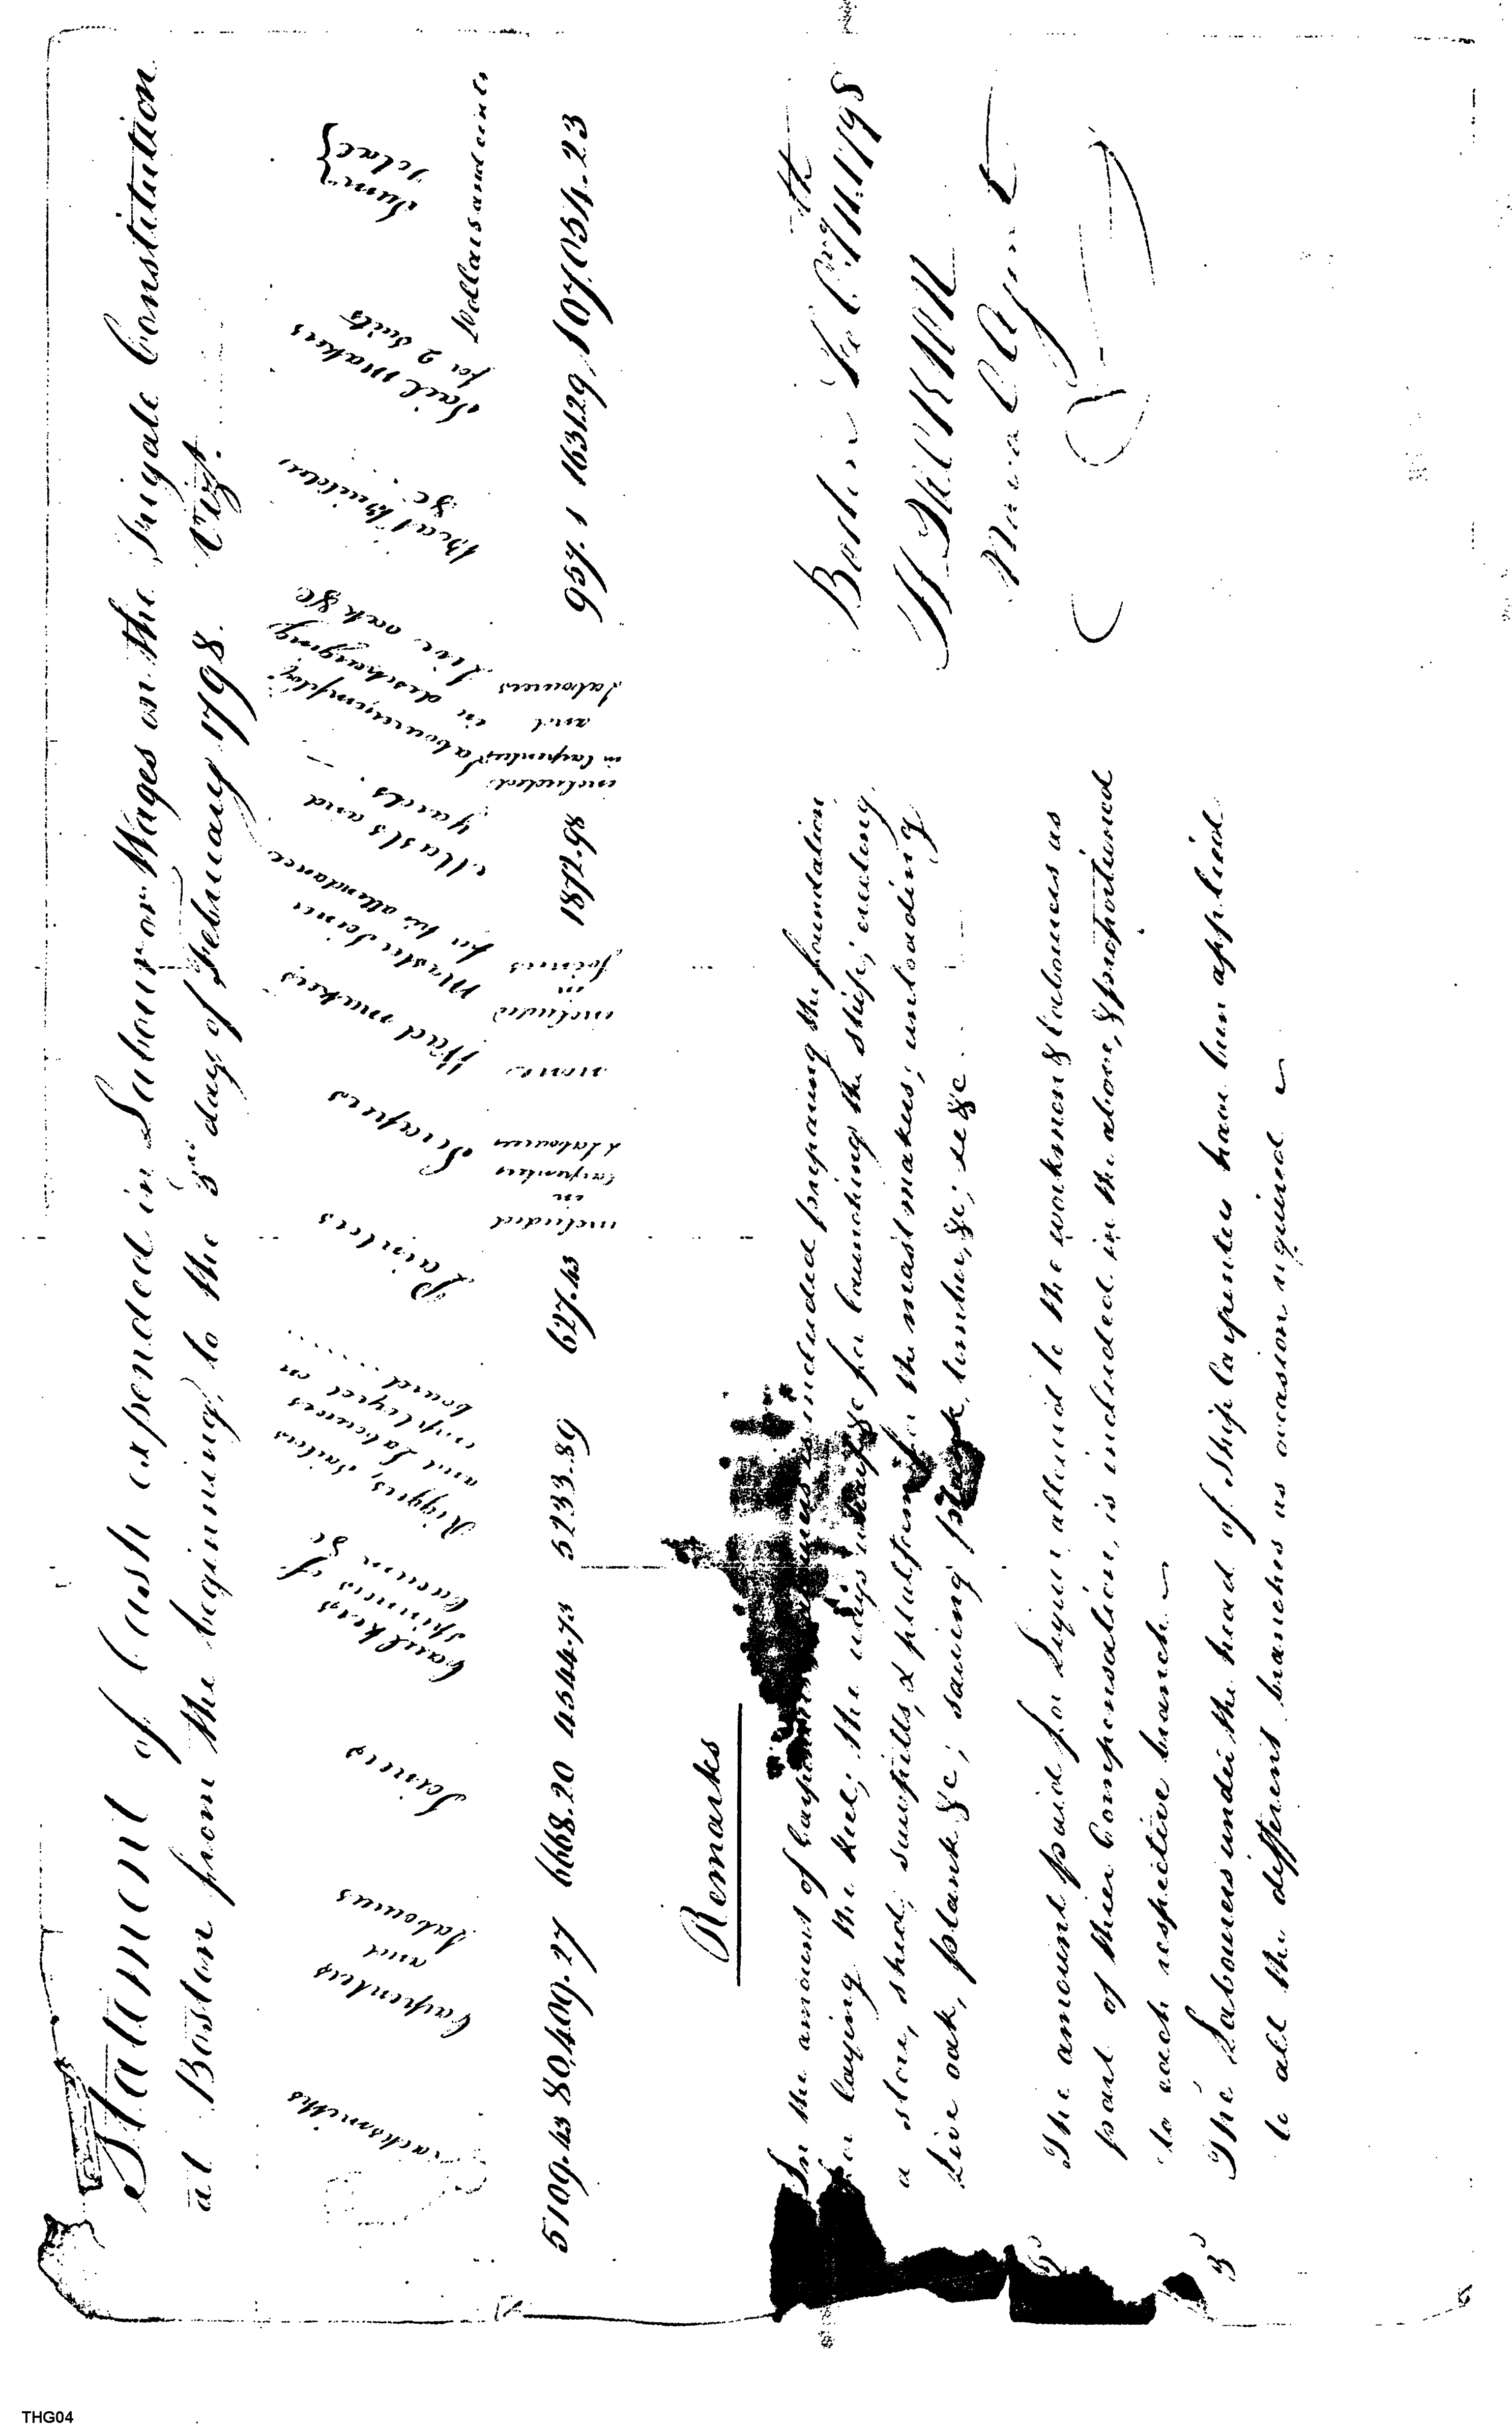 Statement of Cash expended in Labour or Wages on the Frigate Constitution
at Boston from the beginning, to the 3rd day of February 1798. Vizt.
Blacksmiths
Carpenters and Labourers
Joiners
Caulkers Spinners of &c
Riggers, Sailors and Labourers employed on board
Painters
Scrapers
Head makers
Master Joiner for his attendance
Masts and yards.
Labourers employ'd in discharging Live oak &c
Boat Builders &c.
Sail Makers for 2 Suits
Sum Total
Dollars and cents
5109.43 80,409.27 6668.20 4544.73 5233.89 627.43
included in Carpenters & Labourers
none
included in Joiners
1872.98
included in Carpenters and Labourers
957.1 1631.29 107,054.23
Remarks
In the amount of Carpenters included preparing the foundation
for laying the keel; the ways wharf &c for launching the ship; erecting
a store, shed, sawpitts, & platform for the mastmakers; unloading
Live oak, plank &c; sawing plank, timber, &c; &c &c
2
The amount paid for Liquor allowed to the workmen & labourers as
part of their Compensation, is included in the above, & proportioned
to each respective branch
3
The Labourers under the head of Ship Carpenters have been applied
to all the different branches as occasion required
Boston 1798
H Jackson
Naval Agent
THG04